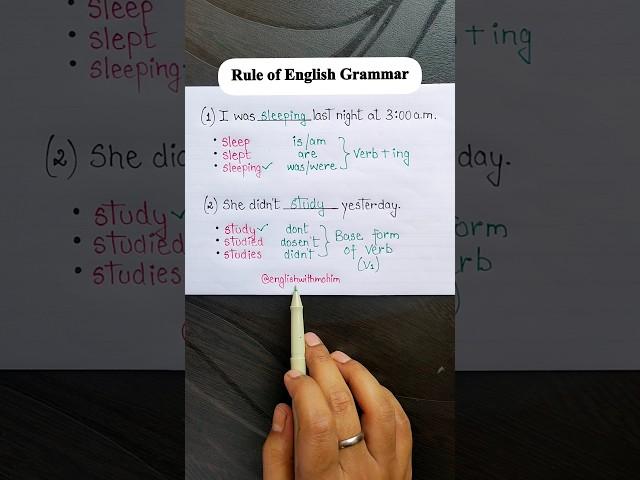 Rule of English Grammar
(1) I was sleeping last night at 3:00 a.m.
• sleep is/am
• slept are } Verb + ing
• sleeping ✓ was/were
(2) She didn't study yesterday.
• study ✓ dont
• studied dosen't } Base form of Verb
• studies didn't (V1)
@englishwithmohim
sleep
slept
• sleeping
+ ing
(2) She did
day.
• study ✓
• studied
• studies
rb